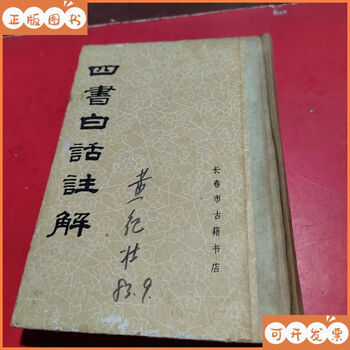 正版图书
四書白話註解
长春市古籍书店
黄纪壮
83.9.
可开发票